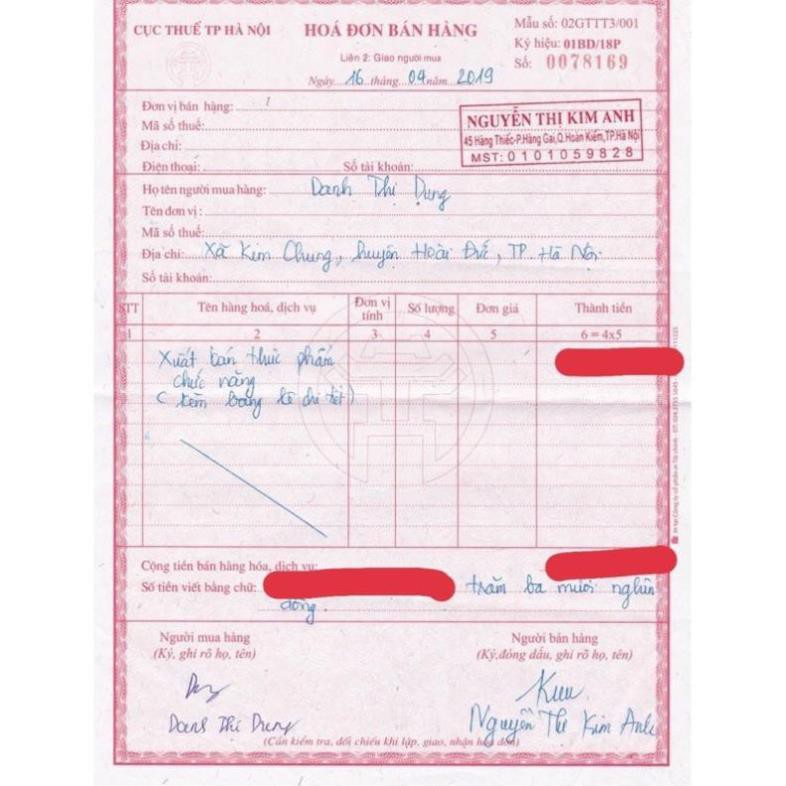 CỤC THUẾ TP HÀ NỘI
HOÁ ĐƠN BÁN HÀNG
Liên 2: Giao người mua
Ngày 16 tháng 04 năm 2019
Mẫu số: 02GTTT3/001
Ký hiệu: 01BD/18P
Số: 0078169
Đơn vị bán hàng:
Mã số thuế:
Địa chỉ:
Điện thoại: Số tài khoản:
NGUYỄN THỊ KIM ANH
45 Hàng Thiếc-P.Hàng Gai,Q.Hoàn Kiếm,TP.Hà Nội
MST: 0101059828
Họ tên người mua hàng: Danh Thị Dung
Tên đơn vị:
Mã số thuế:
Địa chỉ: Xã Kim Chung, huyện Hoài Đức, TP. Hà Nội
Số tài khoản:
STT Tên hàng hoá, dịch vụ Đơn vị tính Số lượng Đơn giá Thành tiền
1 2 3 4 5 6 = 4x5
Xuất bán thực phẩm
chức năng
(kèm bảng kê chi tiết)
Cộng tiền bán hàng hóa, dịch vụ:
Số tiền viết bằng chữ: trăm ba mươi nghìn
đồng.
Người mua hàng
(Ký, ghi rõ họ, tên)
Danh Thị Dung
Người bán hàng
(Ký,đóng dấu, ghi rõ họ, tên)
Nguyễn Thị Kim Anh
(Cần kiểm tra, đối chiếu khi lập, giao, nhận hóa đơn)